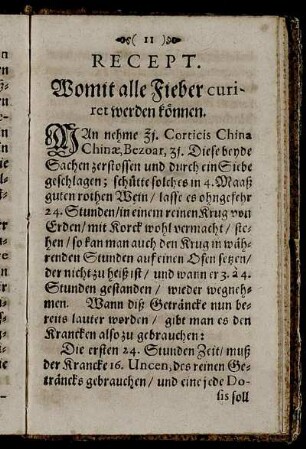 ( 11 )
RECEPT.
Womit alle Fieber curi-
ret werden können.
MAn nehme ʒj. Corticis China
Chinæ, Bezoar, ʒſ. Dieſe beyde
Sachen zerſtoſſen und durch ein Siebe
geſchlagen; ſchütte ſolches in 4. Maaß
guten rothen Wein / laſſe es ohngefehr
24. Stunden / in einem reinen Krug von
Erden / mit Korck wohl vermacht / ſte-
hen / ſo kan man auch den Krug in wäh-
renden Stunden auf einen Ofen ſetzen /
der nicht zu heiß iſt / und wann er 3. 24
Stunden geſtanden / wieder wegneh-
men. Wann diß Geträncke nun be-
reits lauter worden / gibt man es den
Krancken alſo zu gebrauchen:
Die erſten 24. Stunden Zeit / muß
der Krancke 16. Uncen, des reinen Ge-
träncks gebrauchen / und eine jede Do-
ſis ſoll